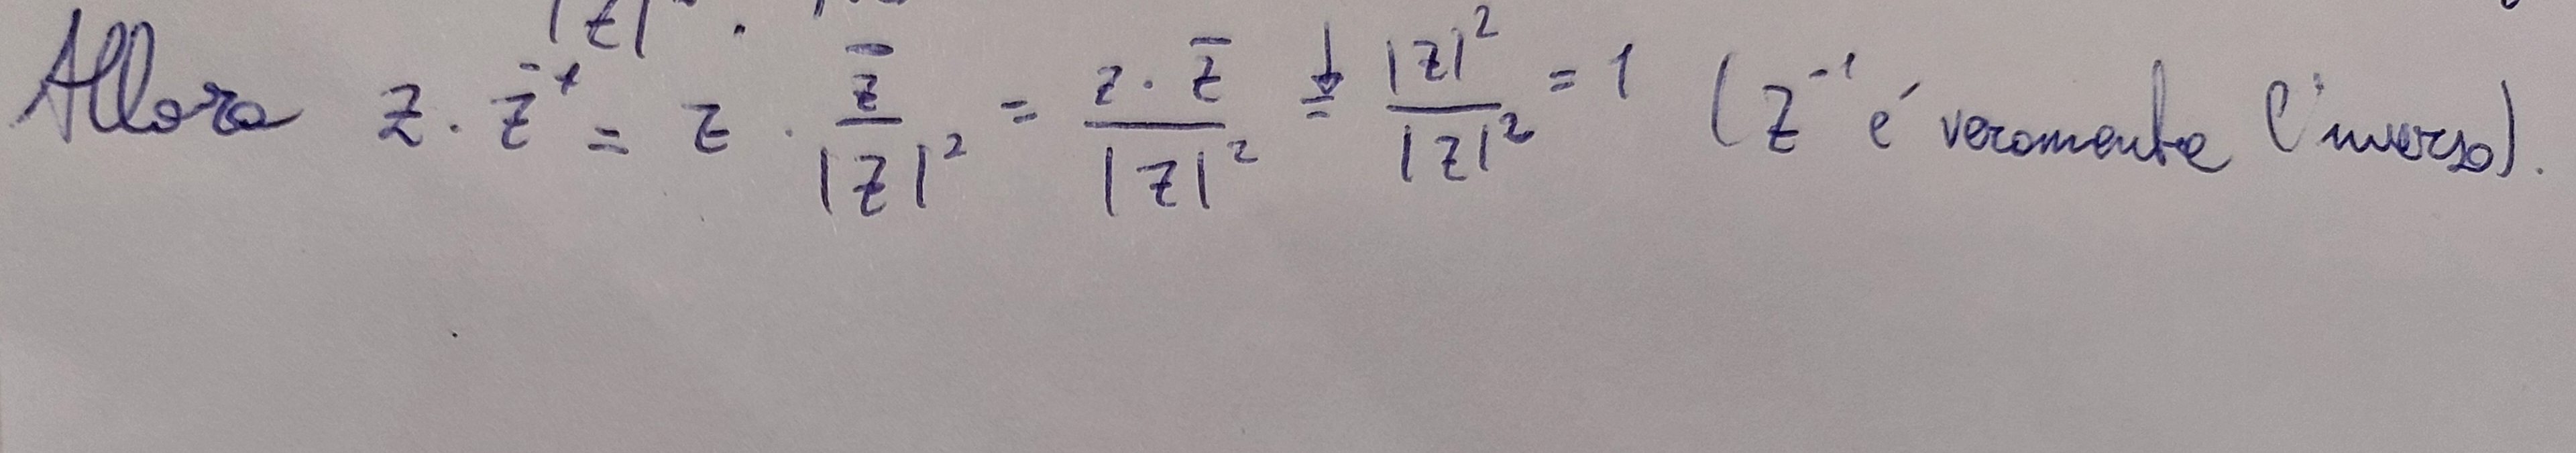 |z|² .
Allora z · z⁻¹ = z · z̄/|z|² = z · z̄/|z|² = |z|²/|z|² = 1 (z⁻¹ é veramente l'inverso).